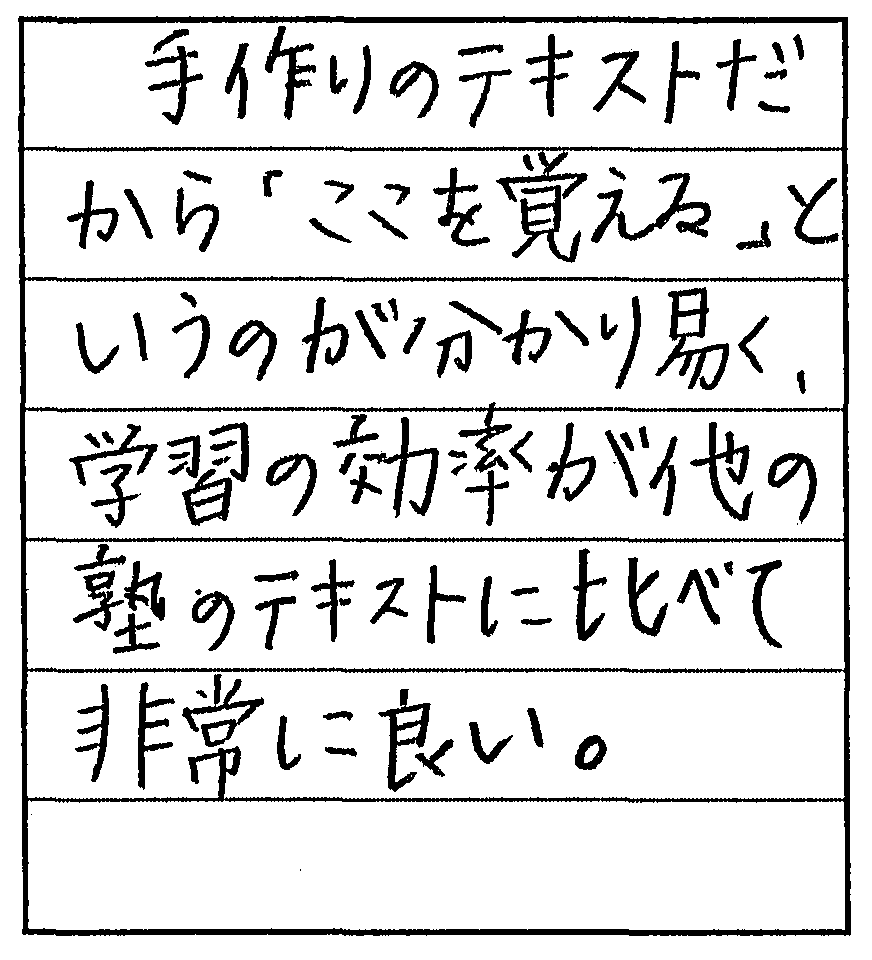 手作りのテキストだ
から「ここを覚える」と
いうのが分かり易く、
学習の効率が他の
塾のテキストに比べて
非常に良い。